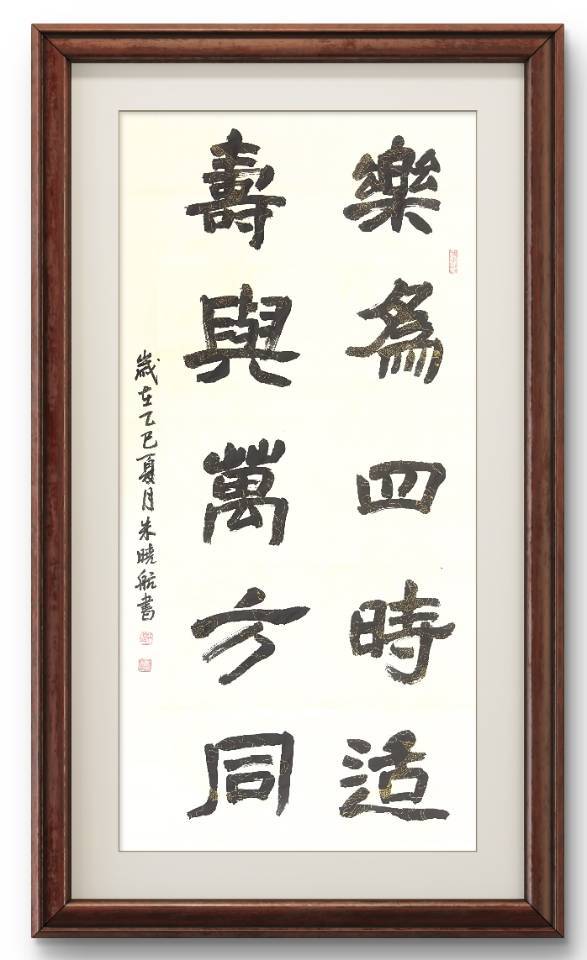 樂為四時适
壽與萬方同
歲在乙巳夏月朱曉航書